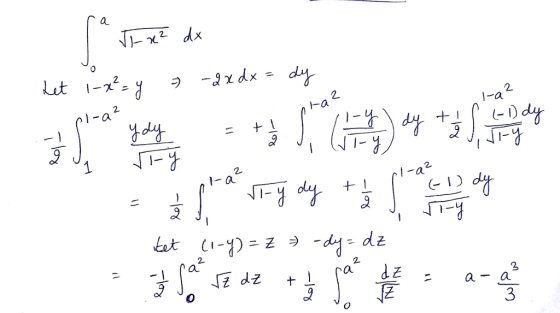 ∫₀^a √(1-x²) dx
Let 1-x² = y ⇒ -2x dx = dy
-1/2 ∫₁^(1-a²) y dy/√(1-y) = +1/2 ∫₁^(1-a²) ((1-y)/√(1-y)) dy + 1/2 ∫₁^(1-a²) (-1) dy/√(1-y)
= 1/2 ∫₁^(1-a²) √(1-y) dy + 1/2 ∫₁^(1-a²) (-1)/√(1-y) dy
Let (1-y) = z ⇒ -dy = dz
= -1/2 ∫₀^(a²) √z dz + 1/2 ∫₀^(a²) dz/√z = a - a³/3